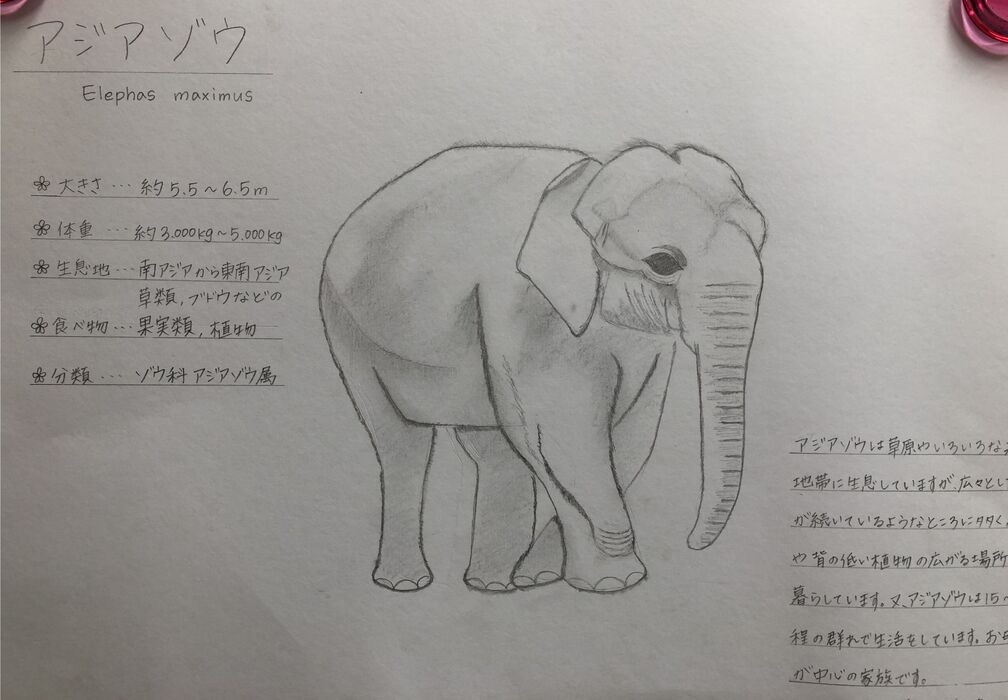 アジアゾウ
Elephas maximus
大きさ … 約5.5～6.5m
体重 … 約3.000kg～5.000kg
生息地 … 南アジアから東南アジア
草類,ブドウなどの
食べ物 … 果実類,植物
分類 … ゾウ科アジアゾウ属
アジアゾウは草原やいろいろな
地帯に生息していますが、広々とし
が続いているようなところに
や背の低い植物の広がる場所
暮らしています。又、アジアゾウは15～
程の群れで生活をしています。お
が中心の家族です。